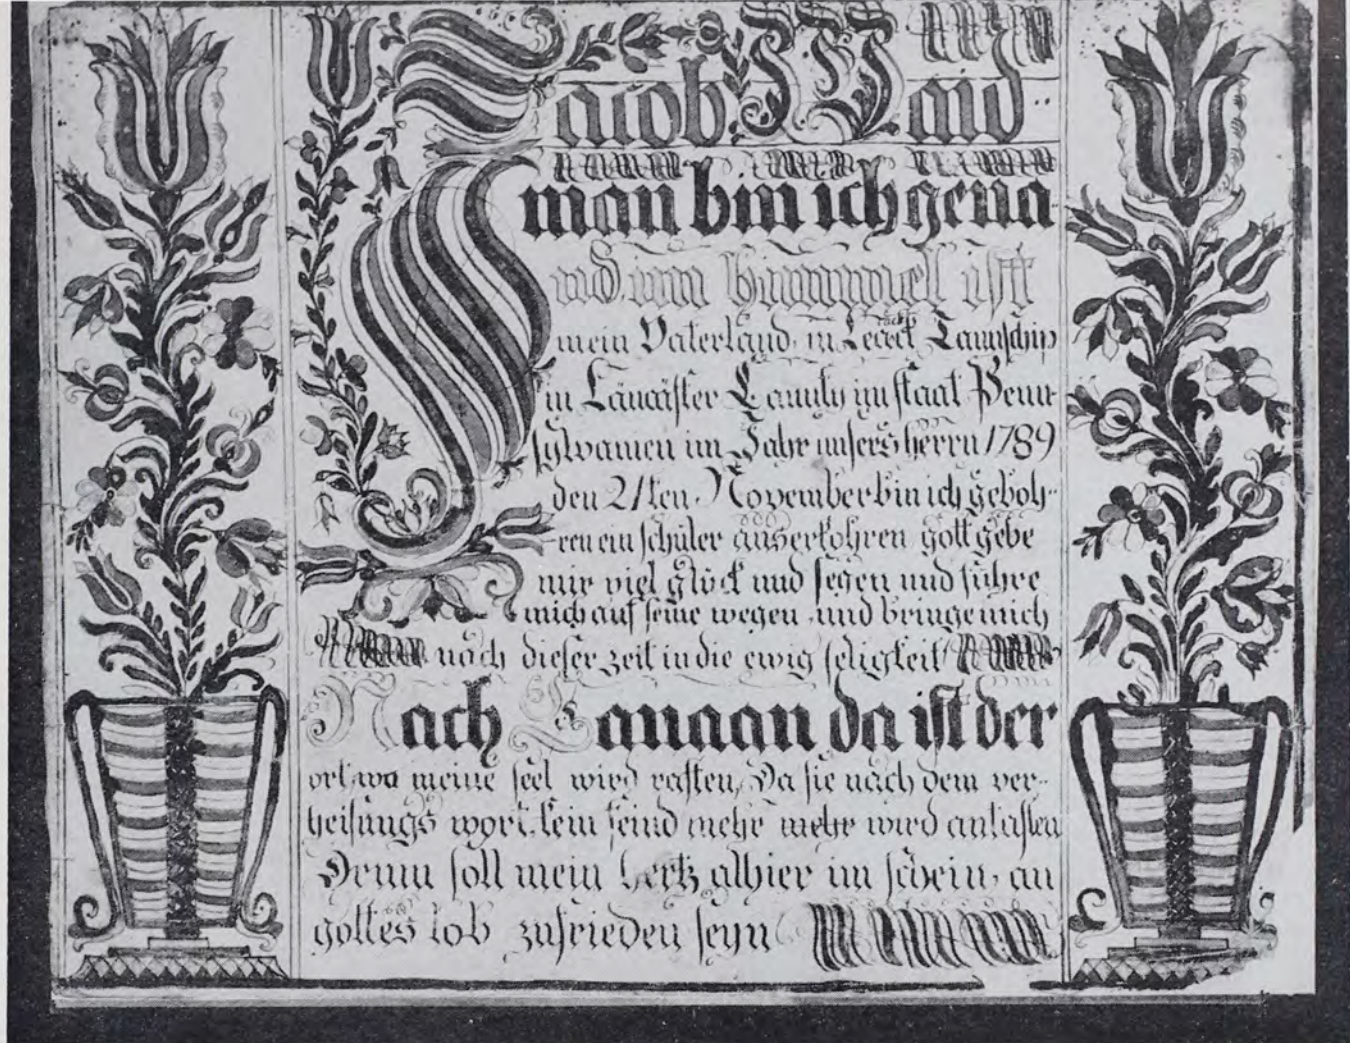 Jacob Weid
man bin ich gena
nd. im himmel ist
mein Vaterland, in Taunschip
in Läncäster Caunty im staat Penn
sylvanien im Jahr unsers herrn 1789
den 21ten November bin ich geboh-
ren ein schüler auserkohren gott gebe
mir viel glück und segen und führe
mich auf seine wegen und bringe mich
nach dieser zeit in die ewig seligkeit
Nach Canaan da ist der
ort, wo meine seel wird rasten, Da sie nach dem ver-
heisungs wort, kein feind mehr mehr wird antasten
Drum soll mein hertz alhier im schein, an
gottes lob zufrieden seyn